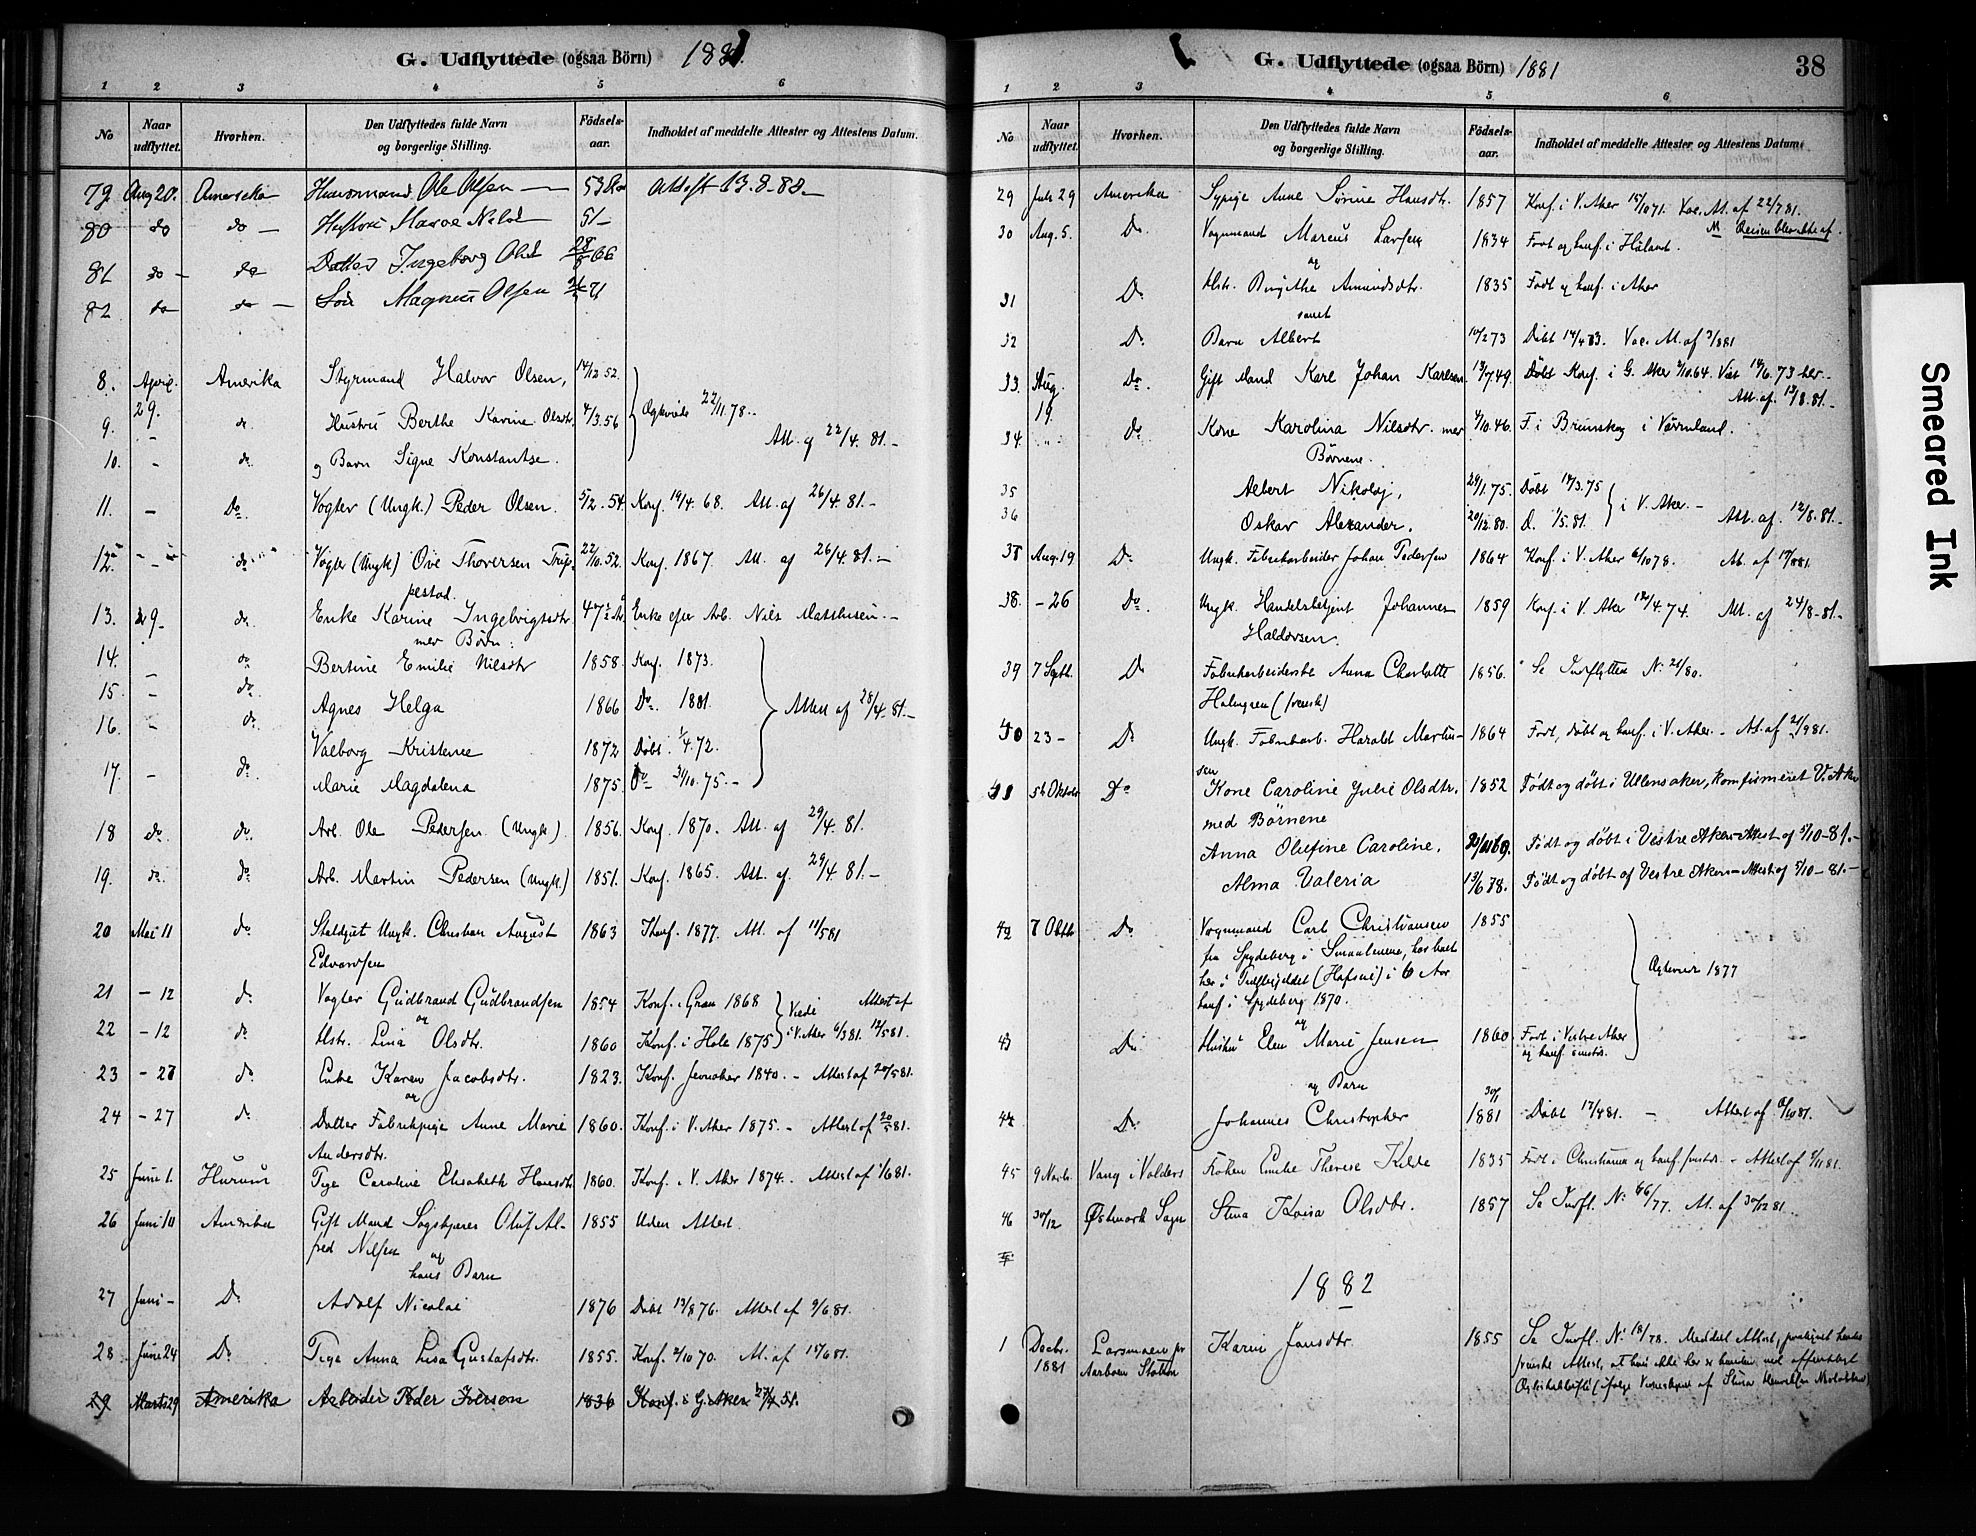 G. Udflyttede (ogsaa Börn) 1881.
1 2 3 4 5 6
No
Naar udflyttet.
Hvorhen.
Den Udflyttedes fulde Navn og borgerlige Stilling.
Födsels-aar.
Indholdet af meddelte Attester og Attestens Datum.
79. Aug 20. Amerika Ole Olsen 53
80 do do 51
81 do do Datter Ingeborg 66
82 do do Magnus Olsen 71
8. April 29. Amerika Styrmand Halvor Olsen, 14/12 52.
9. - do Hustru Berthe Karine Olsdtr 4/3.56 Ægteviede 22/11.78.
Att. af 22/4. 81.-
10. - do og Barn Signe Konstantse.
11. - Do. Vogter (Ungk.) Peder Olsen. 5/12.54 Konf. 19/4. 68. Att. af 26/4. 81.-
12. - do Vogter (Ungk) Ove Thoversen 22/10.52. Konf. 1867. Att. af 26/4. 81.-
13. 29. do Enke Karine Ingebrigtsdtr 47 1/2 Enke efter Arb. Nils Matthisen.-
med Börn:
14. do Bertine Emilie Nilsdtr 1858. Konf. 1873.
15. - do Agnes Helga 1866 Do. 1881.
Attest af 28/4. 81.-
16. - do Valborg Kristense 1872 Döbt. 1/4.72.
17. - do Marie Magdalena 1875. Do 31/10. 75.-
18 do. do. Arb. Ole Pedersen (Ungk.) 1856. Konf. 1870. Att. af 29/4. 81.
19. do. do. Arb. Martin Pedersen (Ungk.) 1851. Konf. 1865. Att. af. 29/4 81.-
20 Mai 11 do Ungk. Christian August 1863 Konf. 1877. Att. af 11/581
Edvardsen
21 - 12 do Vogter Gudbrand Gudbrandsen 1854 Konf. i Gran 1868 Viede Attest af
og
22 - 12 do Hstr. Lina Olsdtr. 1860 Konf. i Hole 1875 i V. Aker 6/381. 12/581.
23 - 27 do Enke Karen Jacobsdtr. 1823. Konf. Jevnaker 1840. - Attest af 20/581.
og
24 - 27 do Datter Fabrikpige Anne Marie 1860. Konf. i V. Aker 1875. - Attest af 20/581.
Andersdtr.
25 Juni 1. Hurum Pige Caroline Elisabeth Hansdtr 1860. Konf. i V. Aker 1874. Attest af 1/681.
26 Juni 10 Amerika Gift Mand Oluf Al- 1855 Uden Attest.
fred Nilsen og
hans Barn
27 Juni - Do Adolf Nicolai 1876 Döbt 13/876. Attest af 9/681.
28 Juni 24 Do Pige Anna Lisa Gustafsdtr. 1855. Konf. 2/10 70. At. af 15/681.
29 Marts 29 Amerika Arbeider Peder Iversen 1836 Konf. i G. Aker 27/4 51.
G. Udflyttede (ogsaa Börn) 1881
38
1 2 3 4 5 6
No
Naar udflyttet.
Hvorhen.
Den Udflyttedes fulde Navn og borgerlige Stilling.
Födsels-aar.
Indholdet af meddelte Attester og Attestens Datum.
29 Juli 29 Amerika Sypige Anne Sörine Hansdtr. 1857 Konf. i V. Aker 15/1071. Vac. At. af 22/781.
30 Aug. 5. Do Vognmand Marcus Larsen 1834 Födt og konf. i Höland.
og
31 Do Hstr. Birgithe Amundsdtr. 1835 Födt og konf. i Aker
samt
32 Do Barn Albert 10/273 Döbt 14/473. Vac. At. af 3/881
33. Aug 19. Do. Gift Mand Karl Johan Karlsen 13/7.49. Konf. i G. Aker 2/10.64. Viet 14/6.73 her.-
Att. af. 12/8.81.-
34 Do Kone Karolina Nilsdtr. med 4/10.46. F. i Brunskog i Värmland.
Börnene.
35 Albert Nikolaj, 29/1.75. Döbt 14/3.75
i V. Aker.- Att. af. 12/8.81.-
36 Oskar Alexander. 20/12.80. D. 1/5.81.
38 Aug. 19 Do Ungk. Fabrikarbeider Johan Pedersen 1864 Konf. i V. Aker 6/1078. At. af 17/881.
38. - 26 Do. Ungk. Handelsbetjent Johannes 1859 Konf. i V. Aker 12/4.74. Att. af 24/8-81.-
Haldorsen.
39 7 Septb. Do Fabrikarbeiderske Anna Charlotte 1856. Se Indflyttede No 21/80.
Holmgren (svensk)
40 23 - Do Ungk. Fabrikarb. Harald Martin- 1864 Födt, döbt og konf. i V. Aker. - At. af 21/981.
sen
41 5te Oktober Do Kone Caroline Julie Olsdtr. 1852 Födt og döbt i Ullensaker, konfirmeret V. Aker
med Börnene
Anna Olufine Caroline. Födt og döbt i Vestre Aker - Attest af 5/10-81.-
Alma Valeria 13/678. Födt og döbt af Vestre Aker - Attest af 5/10-81.-
42 7 Oktb Do Vognmand Carl Christiansen 1855
fra Spydeberg i Smaalenene, har boet
her i i 6 Aar
konf. i Spydeberg 1870.
Ægteviet 1877
og
43 Do Hustru Elen Marie Jensen 1860 Födt i Vestre Aker
og konf.
og Barn 30/1
44 Do Johannes Christopher 1881 Döbt 17/481. - Attest af 6/1081.
45 9 Novb. Vang i Valders Fröken Emilie Therese Kilde 1835 Födt i Christiania og konf. - Attest af 9/1181.
46 30/12 Östmark Sogn Stina Kaisa Olsdtr. 1857 Se Indfl. No 66/77. At. af 30/1281.
1882
1 Decbr. 1881 Karin Jansdtr 1855 Se Indfl. No 18/78. Meddelt Attest,
Smeared Ink